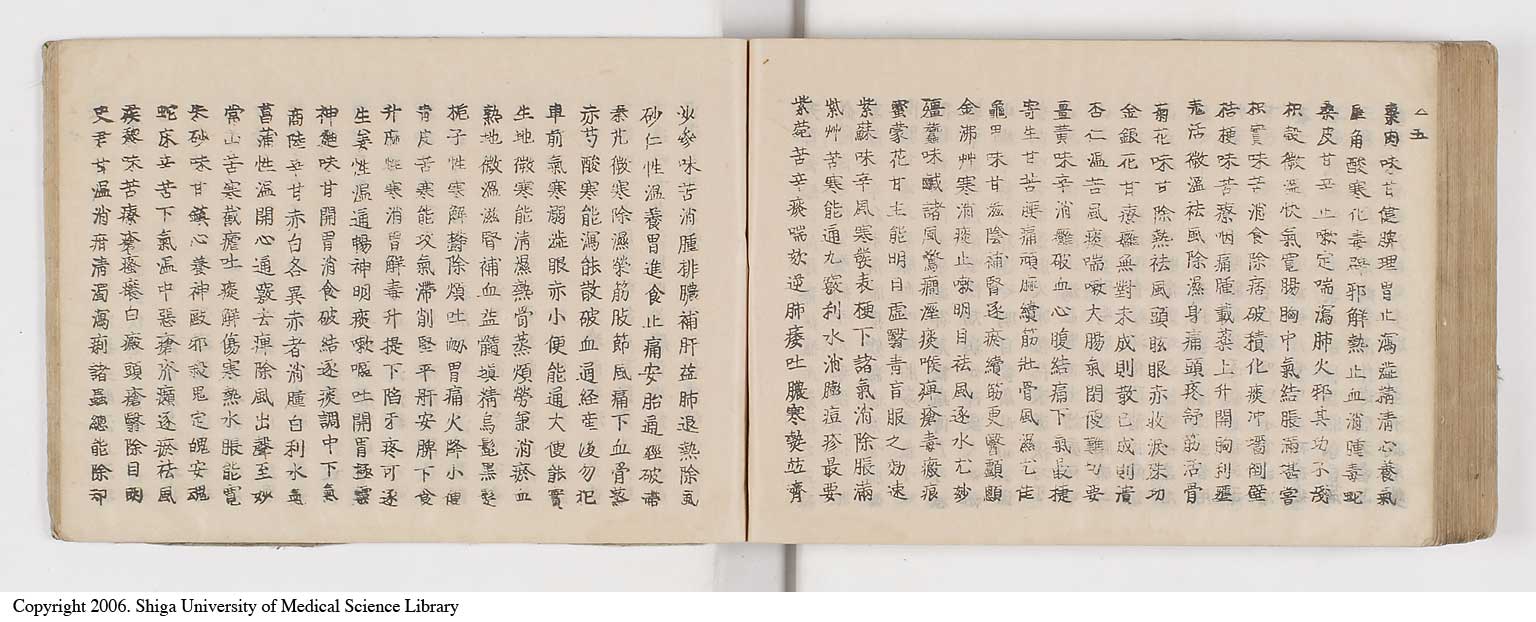 五
棗肉味甘健脾理胃止瀉益精清心養氣
犀角酸寒化毒辟邪解熱止血消腫毒蛇
桑皮甘辛止嗽定喘瀉肺火邪其功不淺
枳殼微温快氣寛腸胸中氣結脹滿甚當
枳實味苦消食除痞破積化痰冲墻倒壁
桔梗味苦療咽痛腫載藥上升開胸利壅
羌活微溫祛風除濕身痛頭疼舒筋活骨
菊花味甘除熱祛風頭眩眼赤收淚殊功
金銀花甘療癰無對未成則散已成則潰
杏仁温苦風痰喘嗽大腸氣閉便難切要
薑黃味辛消癰破血心腹結痛下氣最捷
寄生甘苦腰痛頑麻續筋壯骨風濕尤佳
龜甲味甘滋陰補腎逐瘀續筋更醫顱顖
金沸艸寒消痰止嗽明目祛風逐水尤妙
殭蠶味鹹諸風驚癇溼痰喉痺瘡毒瘢痕
蜜蒙花甘主能明目虚醫青盲服之効速
紫蘇味辛風寒發表梗下諸氣消除脹滿
紫艸苦寒能通九竅利水消膨痘疹最要
紫菀苦辛痰喘欬逆肺痿吐膿寒熱並濟
沙參味苦消腫排膿補肝益肺退熱除風
砂仁性温養胃進食止痛安胎通經破滯
秦艽微寒除濕榮筋肢節風痛下血骨蒸
赤芍酸寒能瀉能散破血通経産後勿犯
車前氣寒溺澁眼赤小便能通大便能實
生地微寒能清濕熱骨蒸煩勞兼消瘀血
熟地微温滋腎補血益髓塡精烏髭黑髮
梔子性寒解鬱除煩吐衂胃痛火降小便
青皮苦寒能攻氣滯削堅平肝安脾下食
升麻性寒消胃解毒升提下陷牙疼可逐
生姜性温通暢神明痰嗽嘔吐開胃極靈
神麯味甘開胃消食破結逐痰調中下氣
商陸辛甘赤白各異赤者消腫白利水氣
菖蒲性温開心通竅去痺除風出聲至妙
常山苦寒截瘧吐痰解傷寒熱水脹能寛
朱砂味甘鎮心養神敺邪殺鬼定魄安魂
蛇床辛苦下氣温中惡瘡疥癩逐瘀祛風
蒺藜味苦療瘡瘙癢白瘢頭瘡翳除目朗
史君甘溫消疳清濁瀉痢諸蟲總能除却